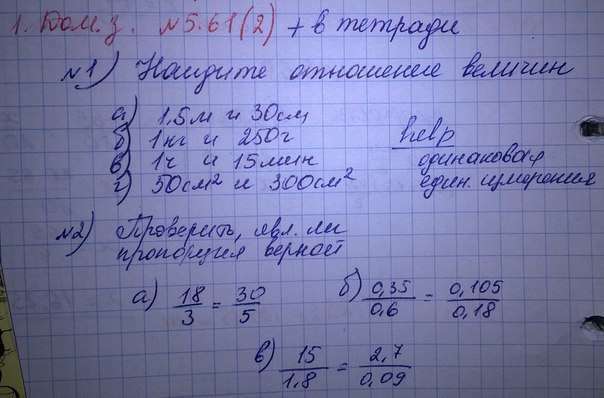 1. Дом. з. №5.61(2) + в тетради
№1) Найдите отношение величин
а) 1,5м и 30см
б) 1кг и 250г
в) 1ч и 15мин
г) 50см² и 300см²
help
одинаковая
един. измерения
№2) Проверить, явл. ли
пропорция верной
а) 18/3 = 30/5
б) 0,35/0,6 = 0,105/0,18
в) 15/1,8 = 2,7/0,09